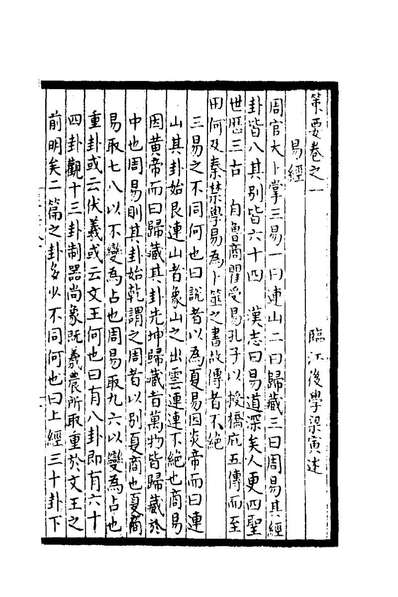 策要卷之一
臨江後學梁寅述
易經
周官大卜掌三易一曰連山二曰歸藏三曰周易其經
卦皆八其別皆六十四 漢志曰易道深矣人更四聖
世歷三古 自魯商瞿受易孔子以授橋庇五傳而至
田何及秦禁學易為卜筮之書故傳者不絕
三易之不同何也曰說者以為夏易因炎帝而曰連
山其卦始艮連山者象山之出雲連連不絕也商易
因黃帝而曰歸藏其卦先坤歸藏者萬物皆歸藏於
中也周易則其卦始乾謂之周者以別夏商也夏商
易取七八以不變為占也周易取九六以變為占也
重卦或云伏羲或云文王何也曰有八卦即有六十
四卦觀十三卦制器尚象既羲農所取重於文王之
前明矣二篇之卦多少不同何也曰上經三十卦下